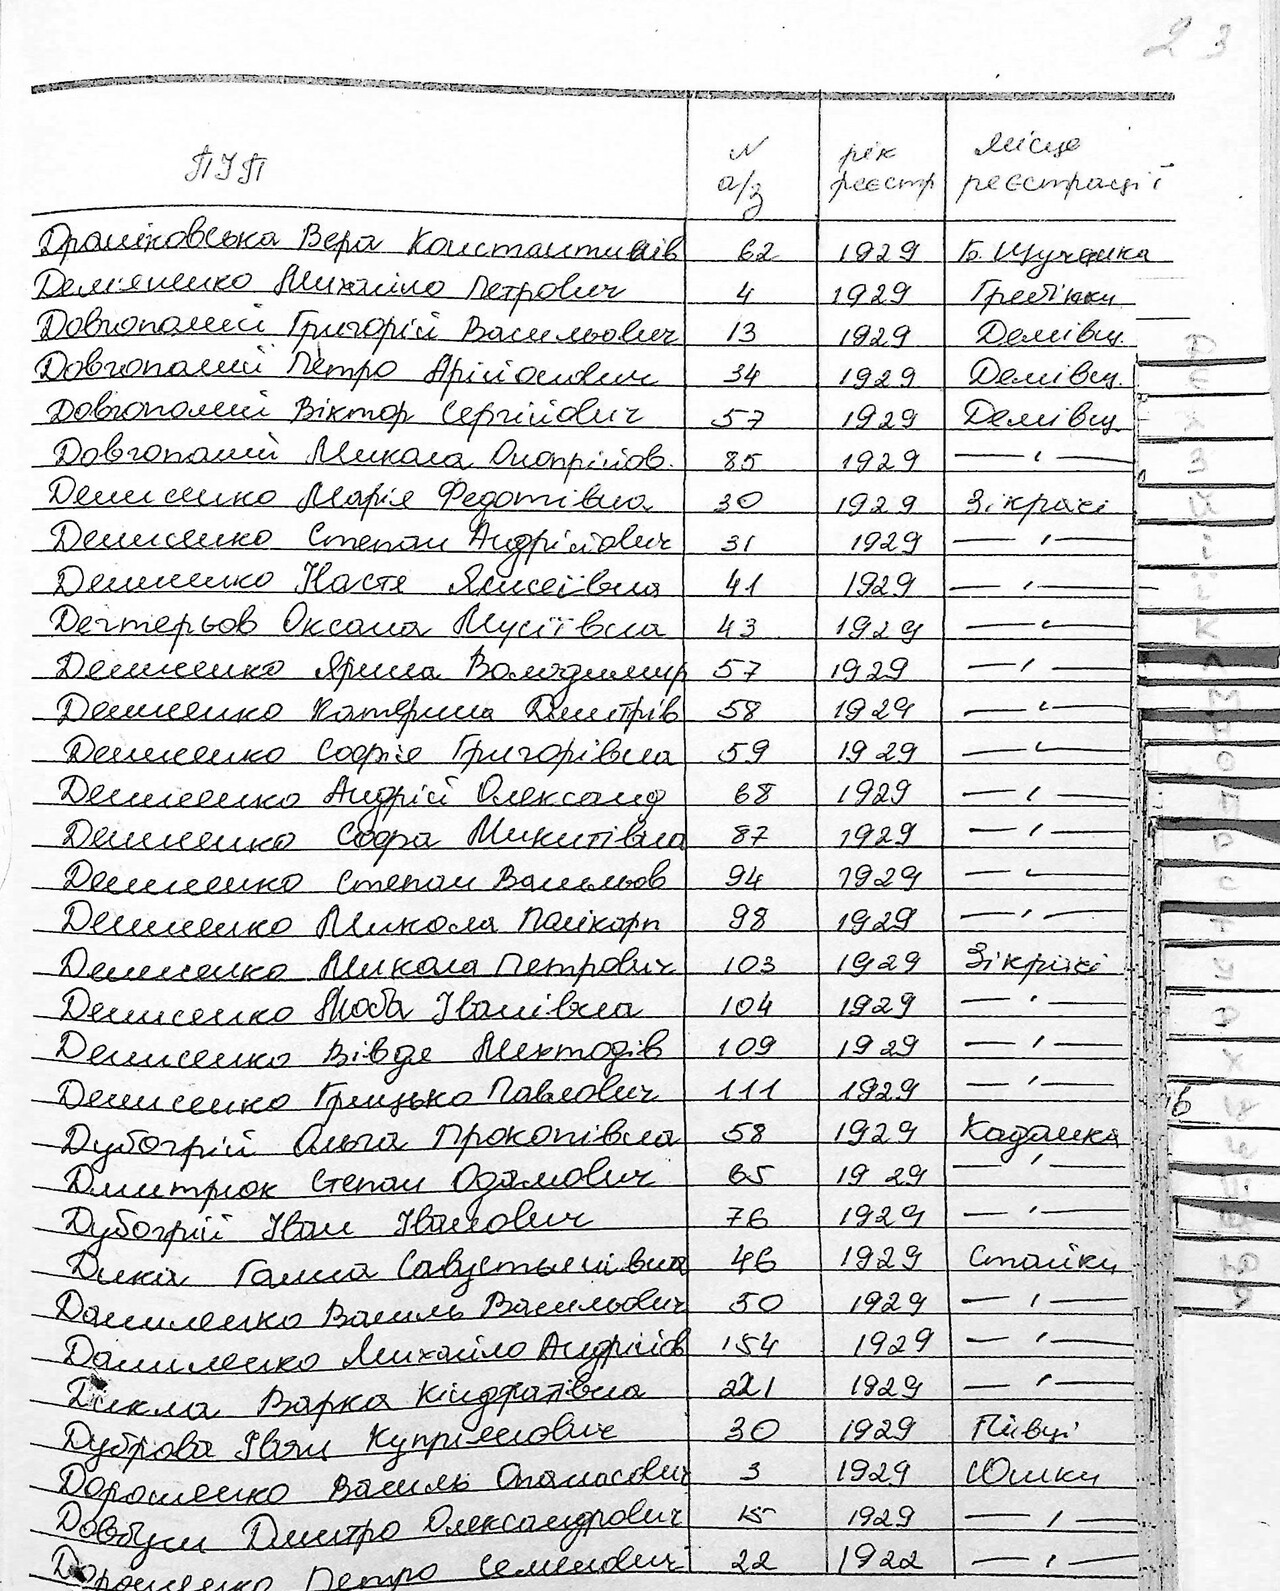 23
ПІП N а/з рік реєстр місце реєстрації
Драніковська Вера Константинів 62 1929 Б. Щучинка
Дем'яненко Михайло Петрович 4 1929 Гребінки
Довгополий Григорій Васильович 13 1929 Демівщ.
Довгополий Петро 34 1929 Демівщ.
Довгополий Віктор Сергійович 57 1929 Демівщ.
Довгополий Микола Оноприйов. 85 1929 —〃—
Денисенко Марія Федотівна 30 1929 Зікрачі
Денисенко Степан Андрійович 31 1929 —〃—
Денисенко Настя 41 1929 —〃—
Дегтерьов Оксана Мусіївна 43 1929 —〃—
Денисенко Ярина Володимир 57 1929 —〃—
Денисенко Катерина Дмитрів 58 1929 —〃—
Денисенко Софія Григорівна 59 1929 —〃—
Денисенко Андрій Олександ 68 1929 —〃—
Денисенко Микитівна 87 1929 —〃—
Денисенко Степан Васильов 94 1929 —〃—
Денисенко Микола Полікарп 98 1929 —〃—
Денисенко Микола Петрович 103 1929 Зікрачі
Денисенко Люба Іванівна 104 1929 —〃—
Денисенко Вівдя Мехтодів 109 1929 —〃—
Денисенко Грицько Павлович 111 1929 —〃—
Дубогрій Ольга Прокопівна 58 1929 Кадомка
Дмитрюк Степан Одамович 65 1929 —〃—
Дубогрій Іван Іванович 76 1929 —〃—
Дика Ганна 46 1929 Стайки
Даниленко Василь Васильович 50 1929 —〃—
Даниленко Михайло Андрійов 154 1929 —〃—
Варка Кіндратівна 221 1929 —〃—
Дуброва Іван Купріянович 30 1929 Півці
Дорошенко Василь Опанасович 3 1929 Юшки
Довбуш Дмитро Олександрович 15 1929 —〃—
Дорошенко Петро Семенович 22 1922 —〃—